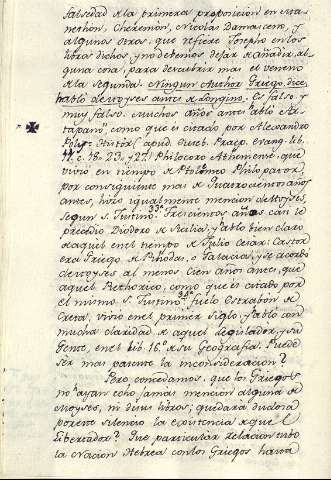 falsedad de la primera proposicion en Ma-
nethon, Cheremon, Nicolas Damasceno, y
algunos otros, que refiere Josepho en los
libros dichos; y no debemos dejar de añadir al
guna cosa, para descubrir mas el veneno
de la segunda. Ningun Author Griego, dice,
habló de Moyses antes de Longino. Es falso, y
muy falso. Muchos años antes habló Ar-
tapano, como que es citado por Alexandro
Polyst. Histor. (apud Euseb. Praep. evang. lib.
c. 18. 23. y 27.) Philocoro Atheniense, que
vivió en tiempo de Ptolomeo Philopator,
por consiguiente mas de quatrocientos años
antes, hizo igualmente mencion de Moyses,
segun S. Justino. Trescientos años casi le
precedio Diodoro de Sicilia, y habló bien claro
de aquel en el tiempo de Julio Cesar. Castor
era Griego de Rhodas, o Galacia, y se acordó
de Moyses al menos cien años antes, que
aquel Rethorico, como que es citado por
el mismo S. Justino. fuelo Estrabon de
Creta, vivió en el primer siglo, y habló con
mucha claridad de aquel Legislador, y su
Gente, en el lib. 16.º de su Geografia. Puede
ser mas patente la inconsideracion?
Pero concedamos, que los Griegos
no hayan echo jamas mencion alguna de
Moyses, ni de sus libros; quedará dudosa
por este silencio la existencia de aquel
Libertador? Que particular relacion tubo
la Nacion Hebrea con los Griegos hasta